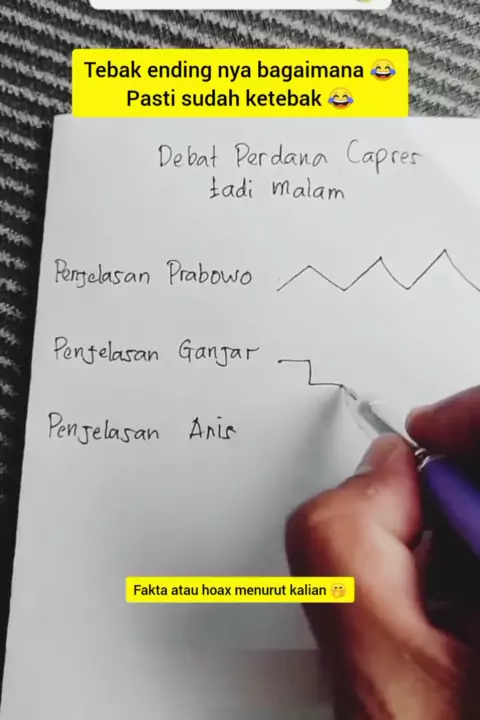 Tebak ending nya bagaimana 😂
Pasti sudah ketebak 😂
Debat Perdana Capres
tadi malam
Penjelasan Prabowo
Penjelasan Ganjar
Penjelasan Anis
Fakta atau hoax menurut kalian 🤭